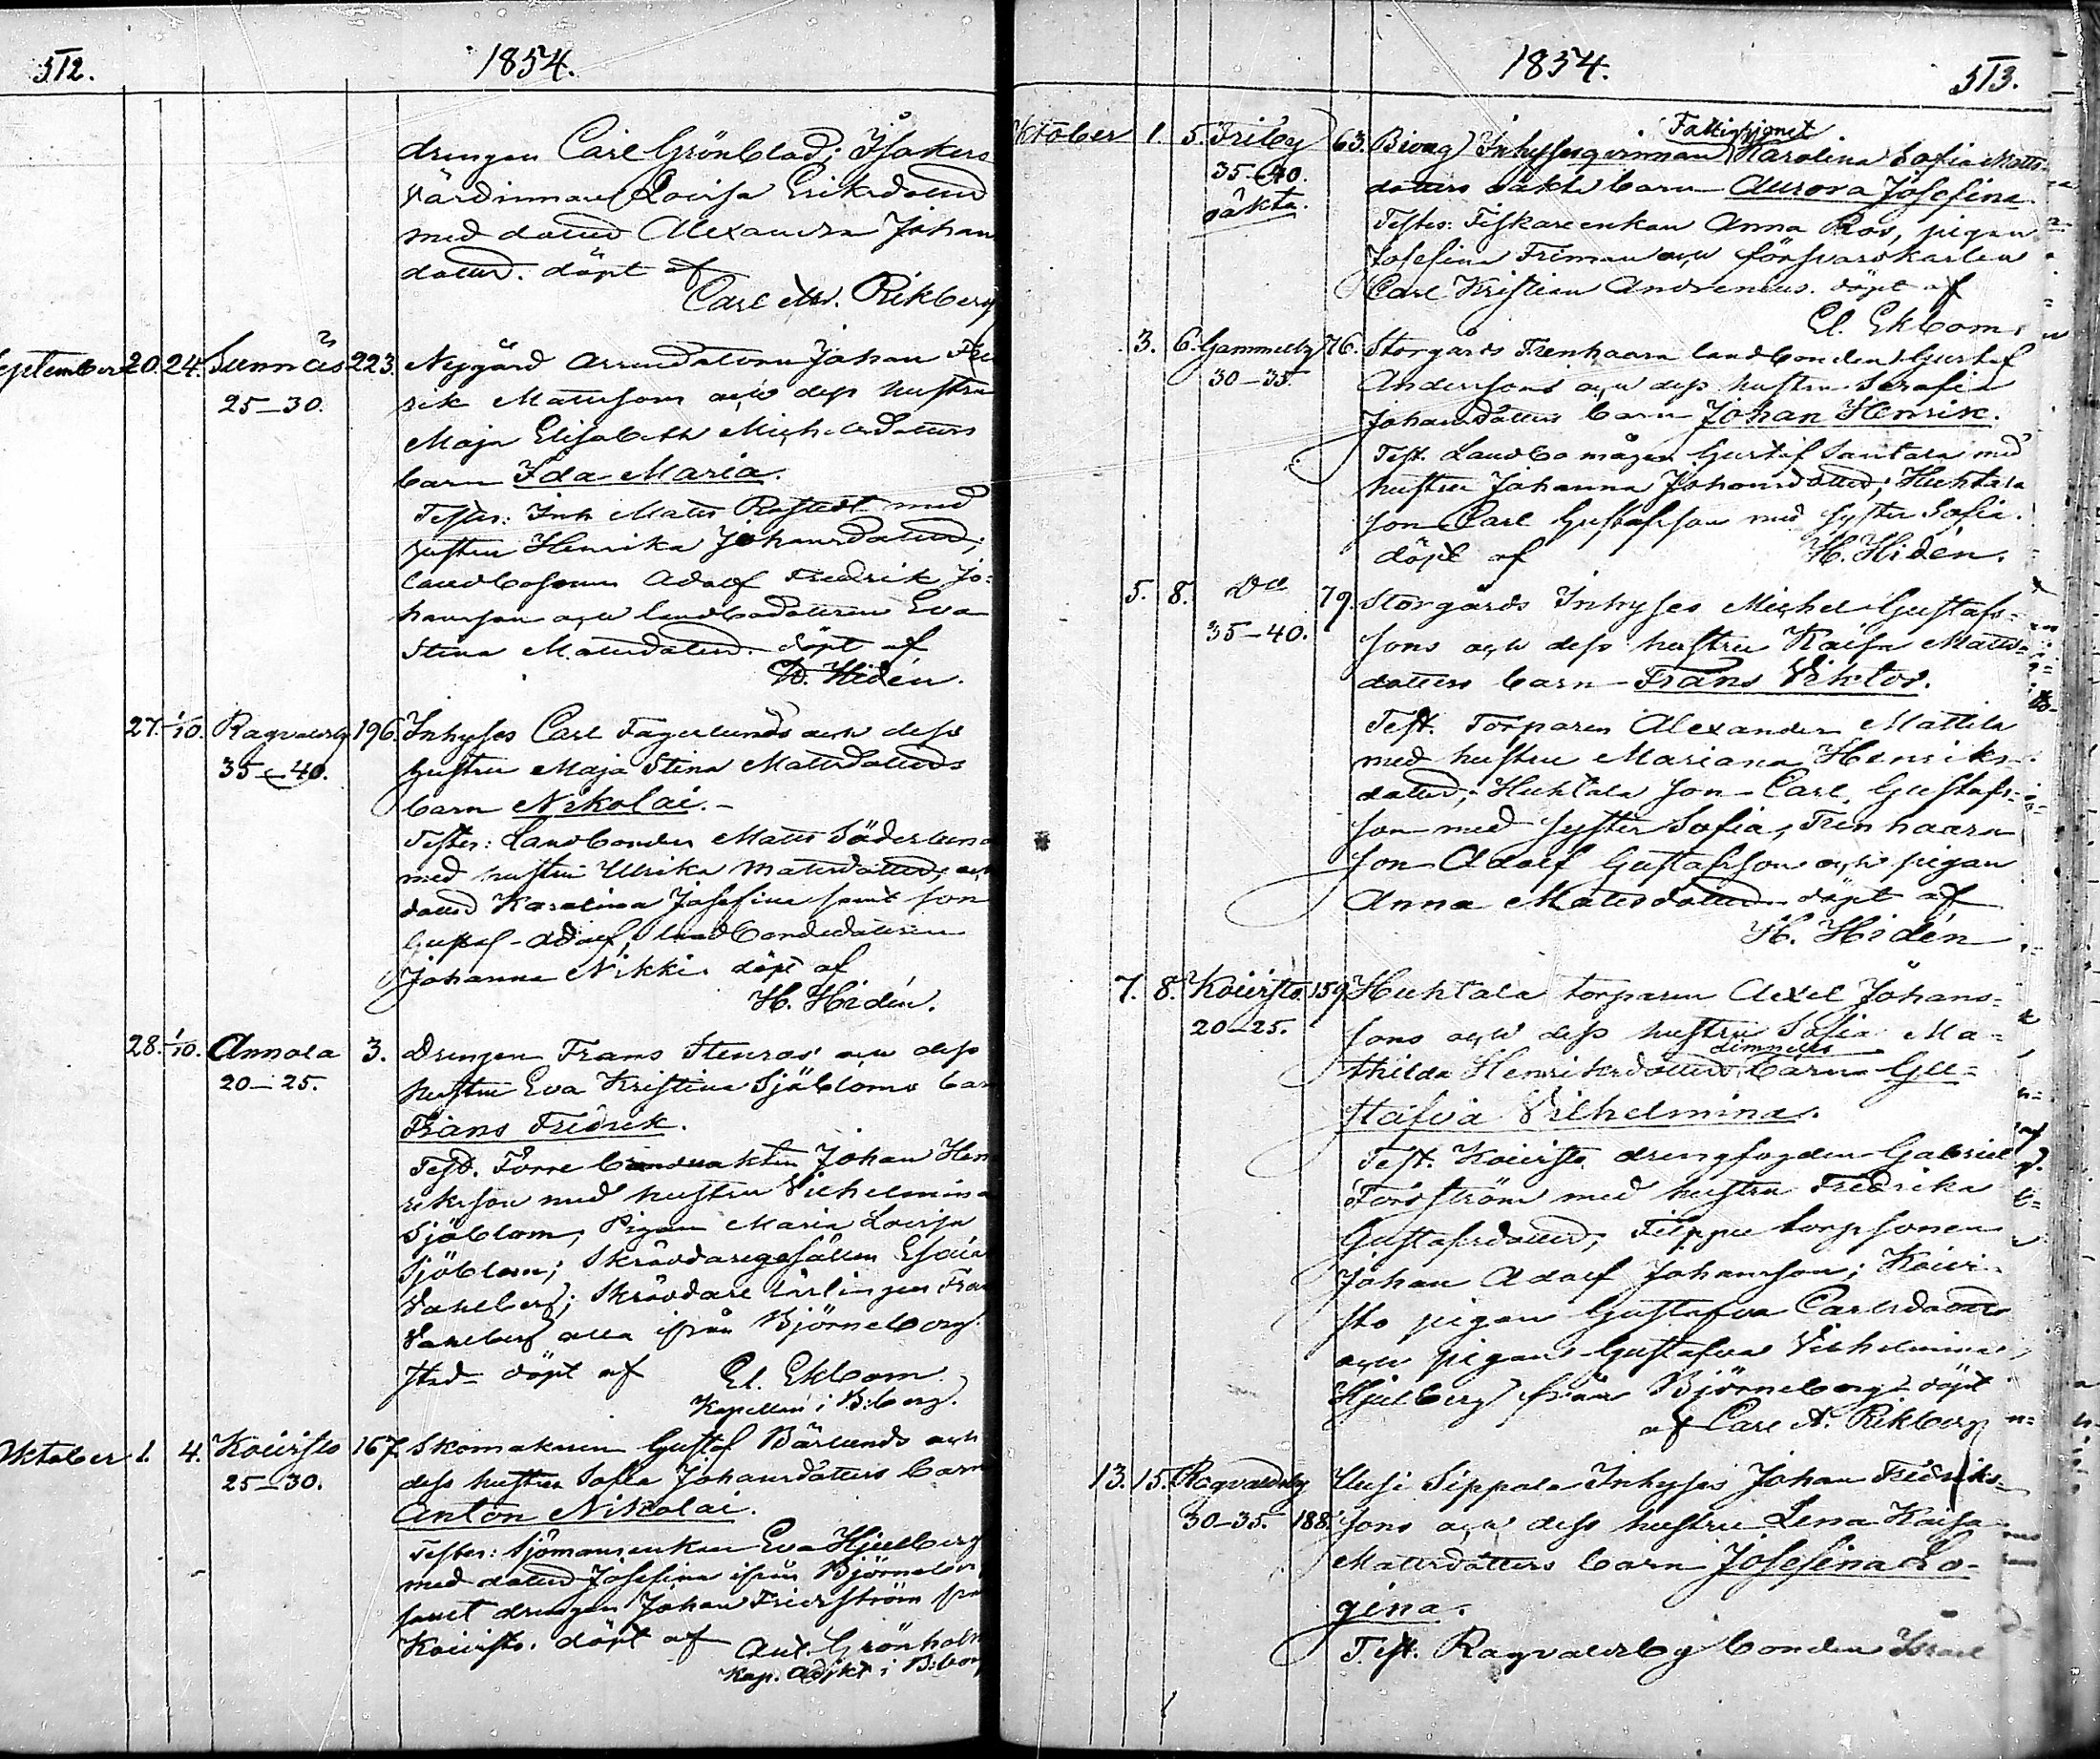 512.
1854.
drengen Carl Grönblad; Isakers
värdinnan Lovisa Eriksdotter
med dotter Alexandra Johans
dotter. döpt af
Carl A. Rikberg
September 20. 24. Sunnäs 223. Nygård Arrendatorn Johan Fred
25–30. rik Mattssons och dess hustru
Maja Elisabeth Michelsdotters
barn Ida Maria.
Testes: Inh Matts Rostedt med
hustru Henrika Johansdotter;
landbosonen Adolf Fredrik Jo-
hansson och landbodottren Eva
Stina Mattsdotter. döpt af
H. Hidén.
27. 1/10. Ragvaldsby 196. Inhyses Carl Fagerlunds och dess
35–40. hustru Maja Stina Mattsdotters
barn Nikolai.
Testes: Landbonden Matts Söderlund
med hustru Ulrika Mattsdotter, och
dotter Karolina Josefina samt son
Gustaf Adolf; landbondedottren
Johanna Nikki. döpt af
H. Hidén.
28. 1/10. Annola 3. Drengen Frans Stenros' och dess
20–25. hustru Eva Kristina Sjöbloms barn
Frans Fredrik.
Test. Förre brandvakten Johan Hen
riksson med hustru Vilhelmina
Sjöblom; Pigan Maria Lovisa
Sjöblom; Skräddaregesällen Esaias
; Skräddare lärlingen Frans
alla ifrån Björneborgs
stad. döpt af El. Ekbom.
Kapellan i B:borg.
Oktober 1. 4. Koivisto 167. Skomakaren Gustaf Bärlunds och
25–30. dess hustru Sofia Johansdotters barn
Anton Nikolai.
Testes: Sjömansenkan Eva Hjulberg
med dotter Josefina ifrån Björneborg
samt drengen Johan Fredrström från
Koivisto. döpt af Ant. Grönholm
Kap. Adjkt i B:borg
1854.
513.
Fattighjonet
Oktober 1. 5. Friby 63. Inhysesqvinnan Karolina Sofia Matts-
35–40. dotters oäkta barn Aurora Josefina
oäkta. Testes: Fiskareenkan Anna Ros, pigan
Josefina Friman och försvarskarlen
Carl Kristian Andrenius. döpt af
El. Ekbom.
3. 6. Gammelby 76. Storgårds Trenhaara landbonden Gustaf
30–35. Anderssons och dess hustru Serafia
Johansdotters barn Johan Henrik.
Test. Landbo mågen Gustaf Santara med
hustru Johanna Johansdotter; Huhtala
son Carl Gustafsson med syster Sofia.
döpt af H. Hidén.
5. 8. Do 79. Storgårds Inhyses Michel Gustafs-
35–40. sons och dess hustru Kaisa Matts-
dotters barn Frans Viktor.
Test. Torparen Alexander Mattila
med hustru Mariana Henriks-
dotter; Huhtala son Carl Gustafs-
son med syster Sofia, Trenhaara
son Adolf Gustafsson och pigan
Anna Mattsdotter. döpt af
H. Hidén
7. 8. Koivisto. 159. Huhtala torparen Axel Johans-
20–25. sons och dess hustru Sofia Ma-
thilda Henriksdotter Limnells barn Gu-
stafva Vilhelmina.
Test. Koivisto drengfogden Gabriel
Forsström med hustru Fredrika
Gustafsdotter; Filppu torpsonen
Johan Adolf Johansson; Koivi-
sto pigan Gustafva Carlsdotter
och pigan Gustafva Vilhelmina
Hjulberg från Björneborg. döpt
af Carl A. Rikberg
13. 15. Ragvaldsby Uusi Sippola Inhyses Johan Fredriks-
30–35. 188. sons och dess hustru Lena Kaisa
Mattsdotters barn Josefina Lo-
gina.
Test. Ragvaldsby bonden Israel